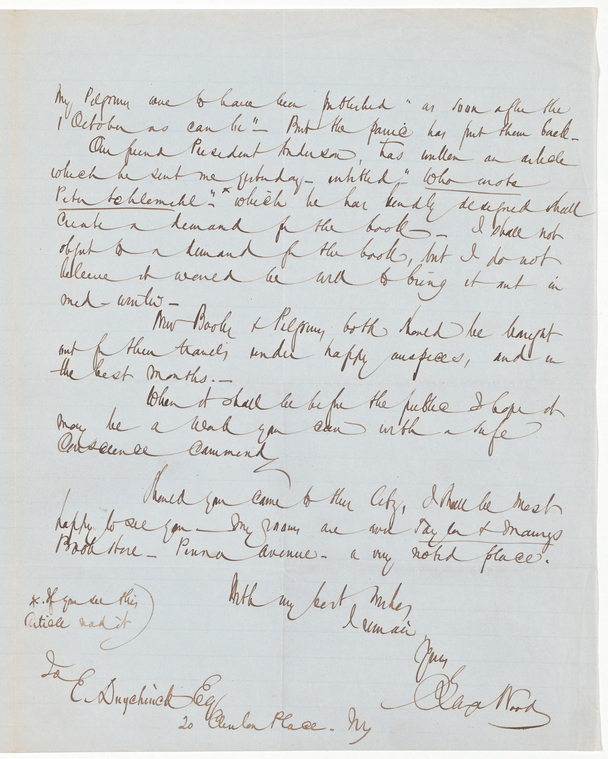 My Pilgrims were to have been published "as soon after the
1 October as can be" – But the panic has put them back –
Our friend President Anderson, has written an article
which he sent me yesterday – intitled "Who wrote
Peter Schlemihl"* which he has kindly designed shall
Create a demand for the book – I shall not
object to a demand for the book, but I do not
believe it would be well to bring it out in
mid-winter –
New Books & Pilgrims both should be brought
out for their travels under happy auspices, and in
the best months. –
When it shall be before the public I hope it
may be a work you can with a safe
Conscience Commend
Should you come to this City, I shall be most
happy to see you – My rooms are over Taylor & Maury's
Book Store – Penna Avenue – a very noted place.
With my best wishes
I remain
Yours
Wood
*. If you see this
article read it
To
E. Duyckinck Esq
20 Clinton Place – Ny